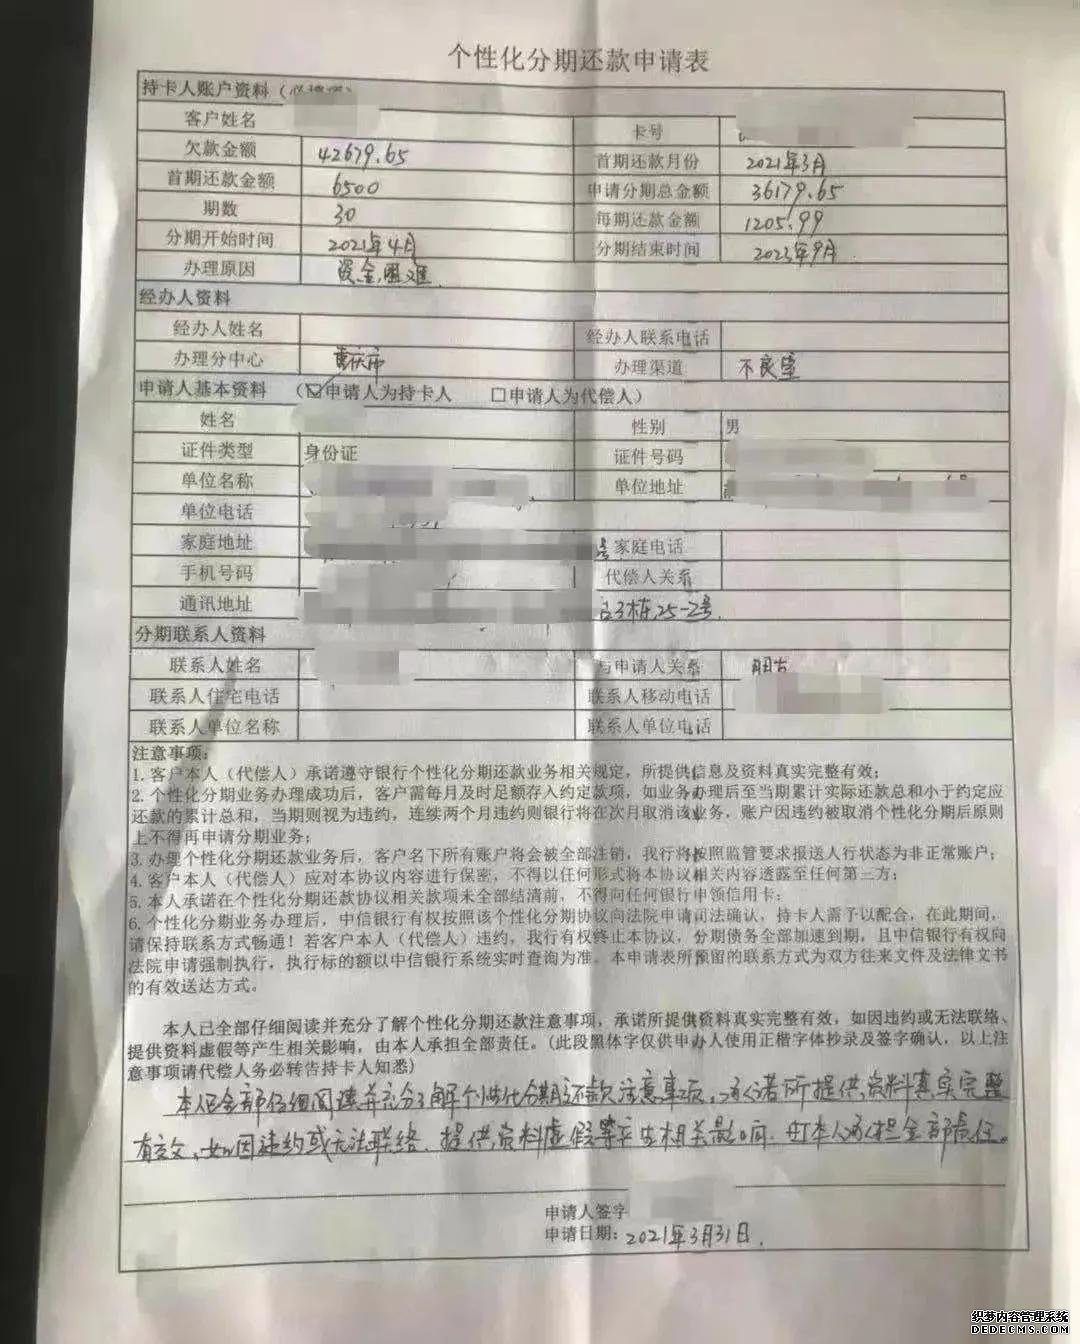 个性化分期还款申请表
持卡人账户资料（必填项）
客户姓名 卡号
欠款金额 42679.65 首期还款月份 2021年3月
首期还款金额 6500 申请分期总金额 36179.65
期数 30 每期还款金额 1205.99
分期开始时间 2021年4月 分期结束时间 2023年9月
办理原因 资金困难
经办人资料
经办人姓名 经办人联系电话
办理分中心 重庆市 办理渠道 不良室
申请人基本资料 （☑申请人为持卡人 □申请人为代偿人）
姓名 性别 男
证件类型 身份证 证件号码
单位名称 单位地址
单位电话
家庭地址 号 家庭电话
手机号码 代偿人关系
通讯地址 3栋25-2号
分期联系人资料
联系人姓名 与申请人关系 朋友
联系人住宅电话 联系人移动电话
联系人单位名称 联系人单位电话
注意事项：
1. 客户本人（代偿人）承诺遵守银行个性化分期还款业务相关规定，所提供信息及资料真实完整有效；
2. 个性化分期业务办理成功后，客户需每月及时足额存入约定款项，如业务办理后至当期累计实际还款总和小于约定应
还款的累计总和，当期则视为违约，连续两个月违约则银行将在次月取消该业务，账户因违约被取消个性化分期后原则
上不得再申请分期业务；
3. 办理个性化分期还款业务后，客户名下所有账户将会被全部注销，我行将按照监管要求报送人行状态为非正常账户；
4. 客户本人（代偿人）应对本协议内容进行保密，不得以任何形式将本协议相关内容透露至任何第三方；
5. 本人承诺在个性化分期还款协议相关款项未全部结清前，不得向任何银行申领信用卡；
6. 个性化分期业务办理后，中信银行有权按照该个性化分期协议向法院申请司法确认，持卡人需予以配合，在此期间，
请保持联系方式畅通！若客户本人（代偿人）违约，我行有权终止本协议，分期债务全部加速到期，且中信银行有权向
法院申请强制执行，执行标的额以中信银行系统实时查询为准。本申请表所预留的联系方式为双方往来文件及法律文书
的有效送达方式。
本人已全部仔细阅读并充分了解个性化分期还款注意事项，承诺所提供资料真实完整有效，如因违约或无法联络、
提供资料虚假等产生相关影响，由本人承担全部责任。(此段黑体字仅供申办人使用正楷字体抄录及签字确认，以上注
意事项请代偿人务必转告持卡人知悉)
本人已全部仔细阅读并充分了解个性化分期还款注意事项，承诺所提供资料真实完整
有效，如因违约或无法联络、提供资料虚假等产生相关影响，由本人承担全部责任。
申请人签字
申请日期：2021年3月31日.
织梦内容管理系统
DEDECMS.COM